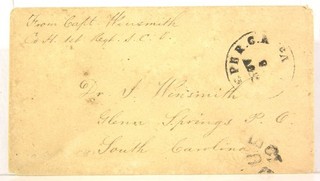 From Capt. Winsmith
Co H. 1st Regt. S. C. V.
Dr. J. Winsmith
Glenn Springs P. O.
South Carolina